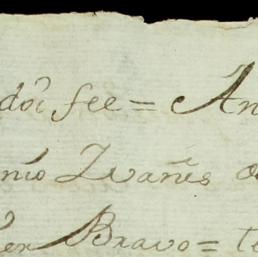 doi fee = An
nio Zvañes
er Bravo = te